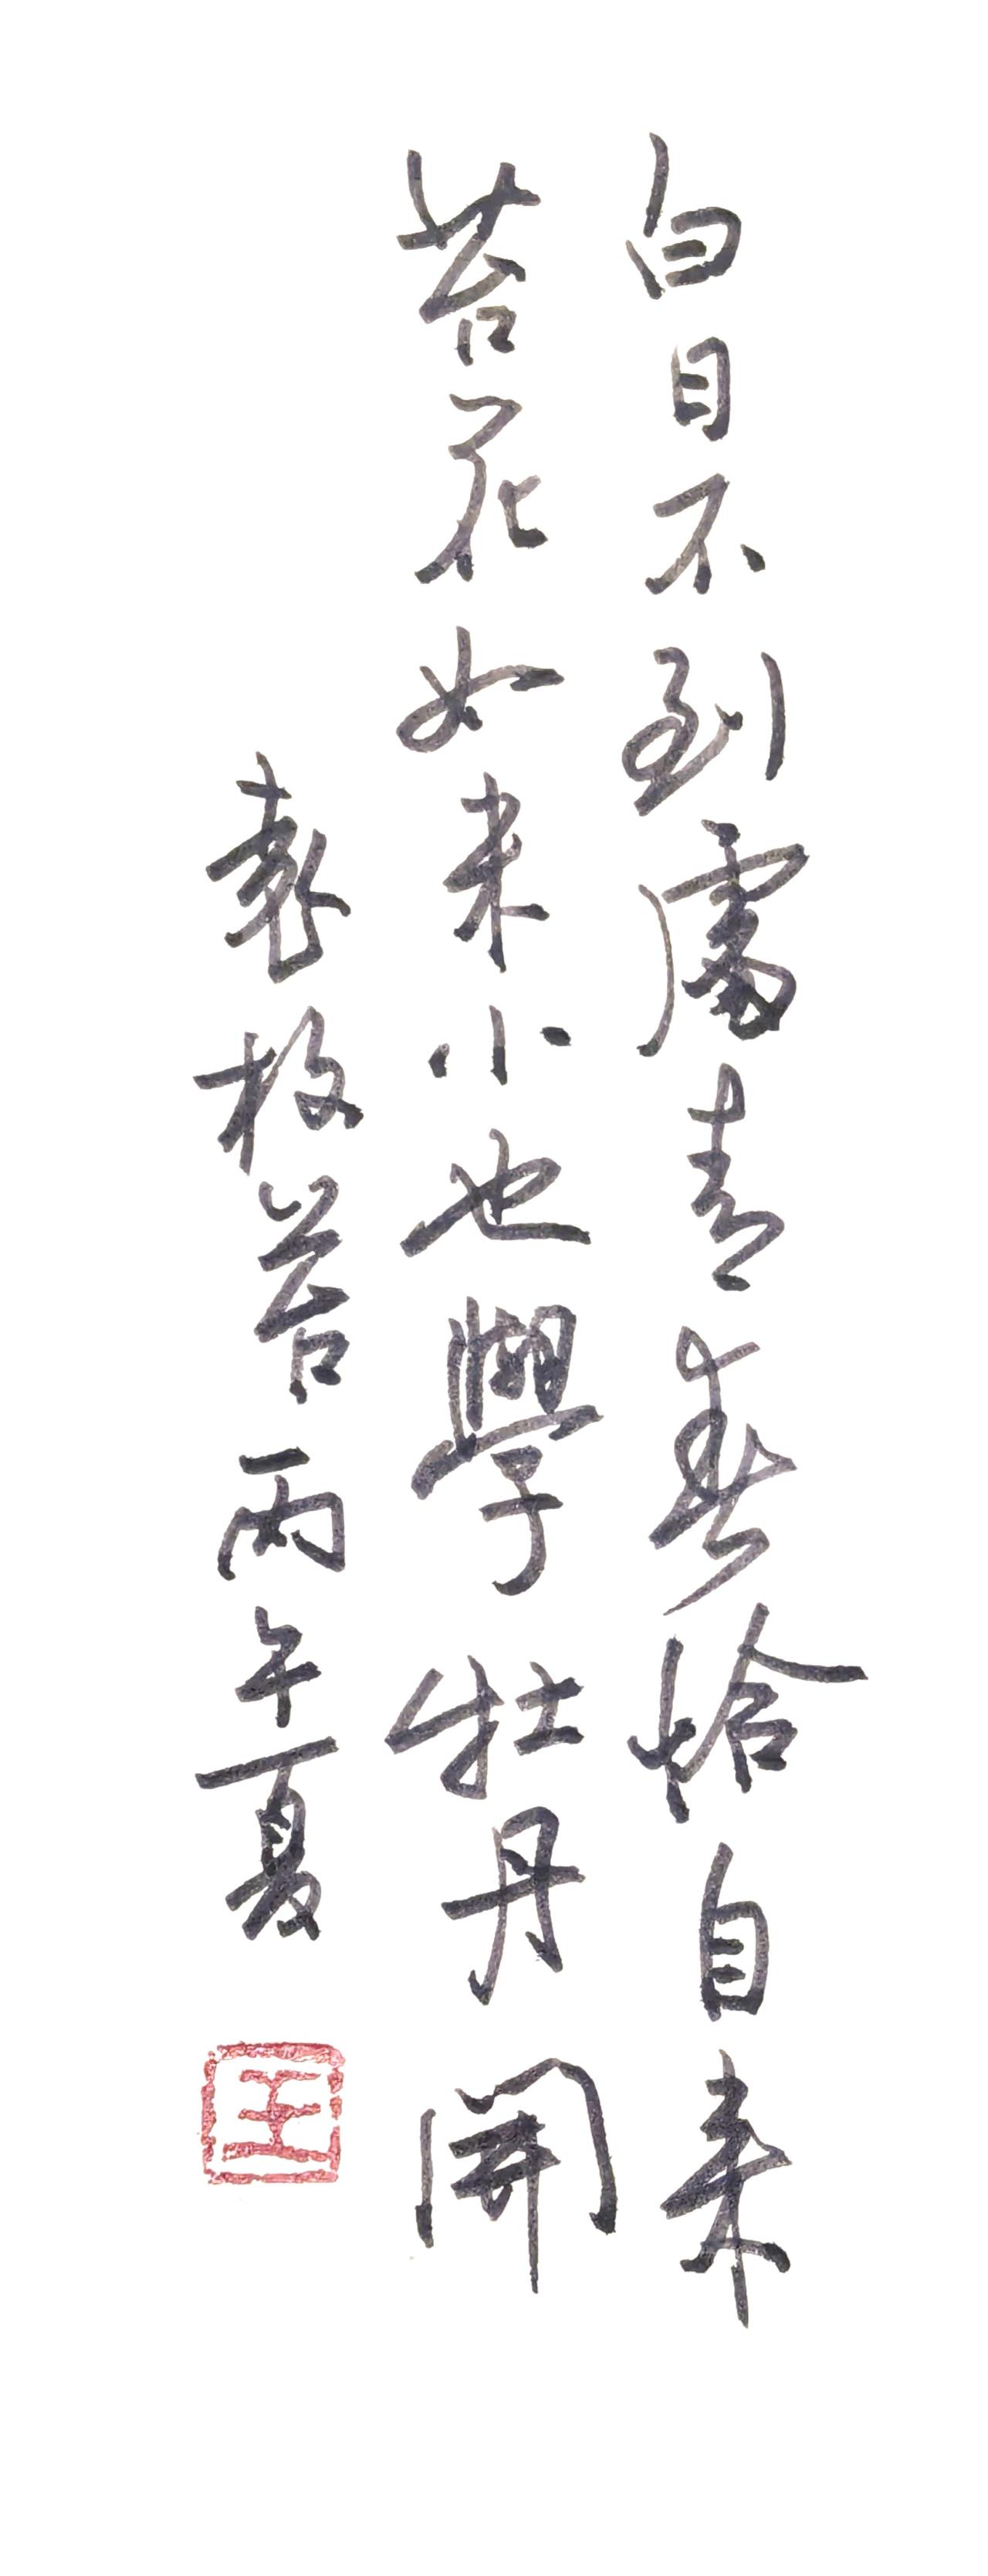 白日不到處青春恰自來
苔花如米小也學牡丹開
袁枚苔丙午夏
王